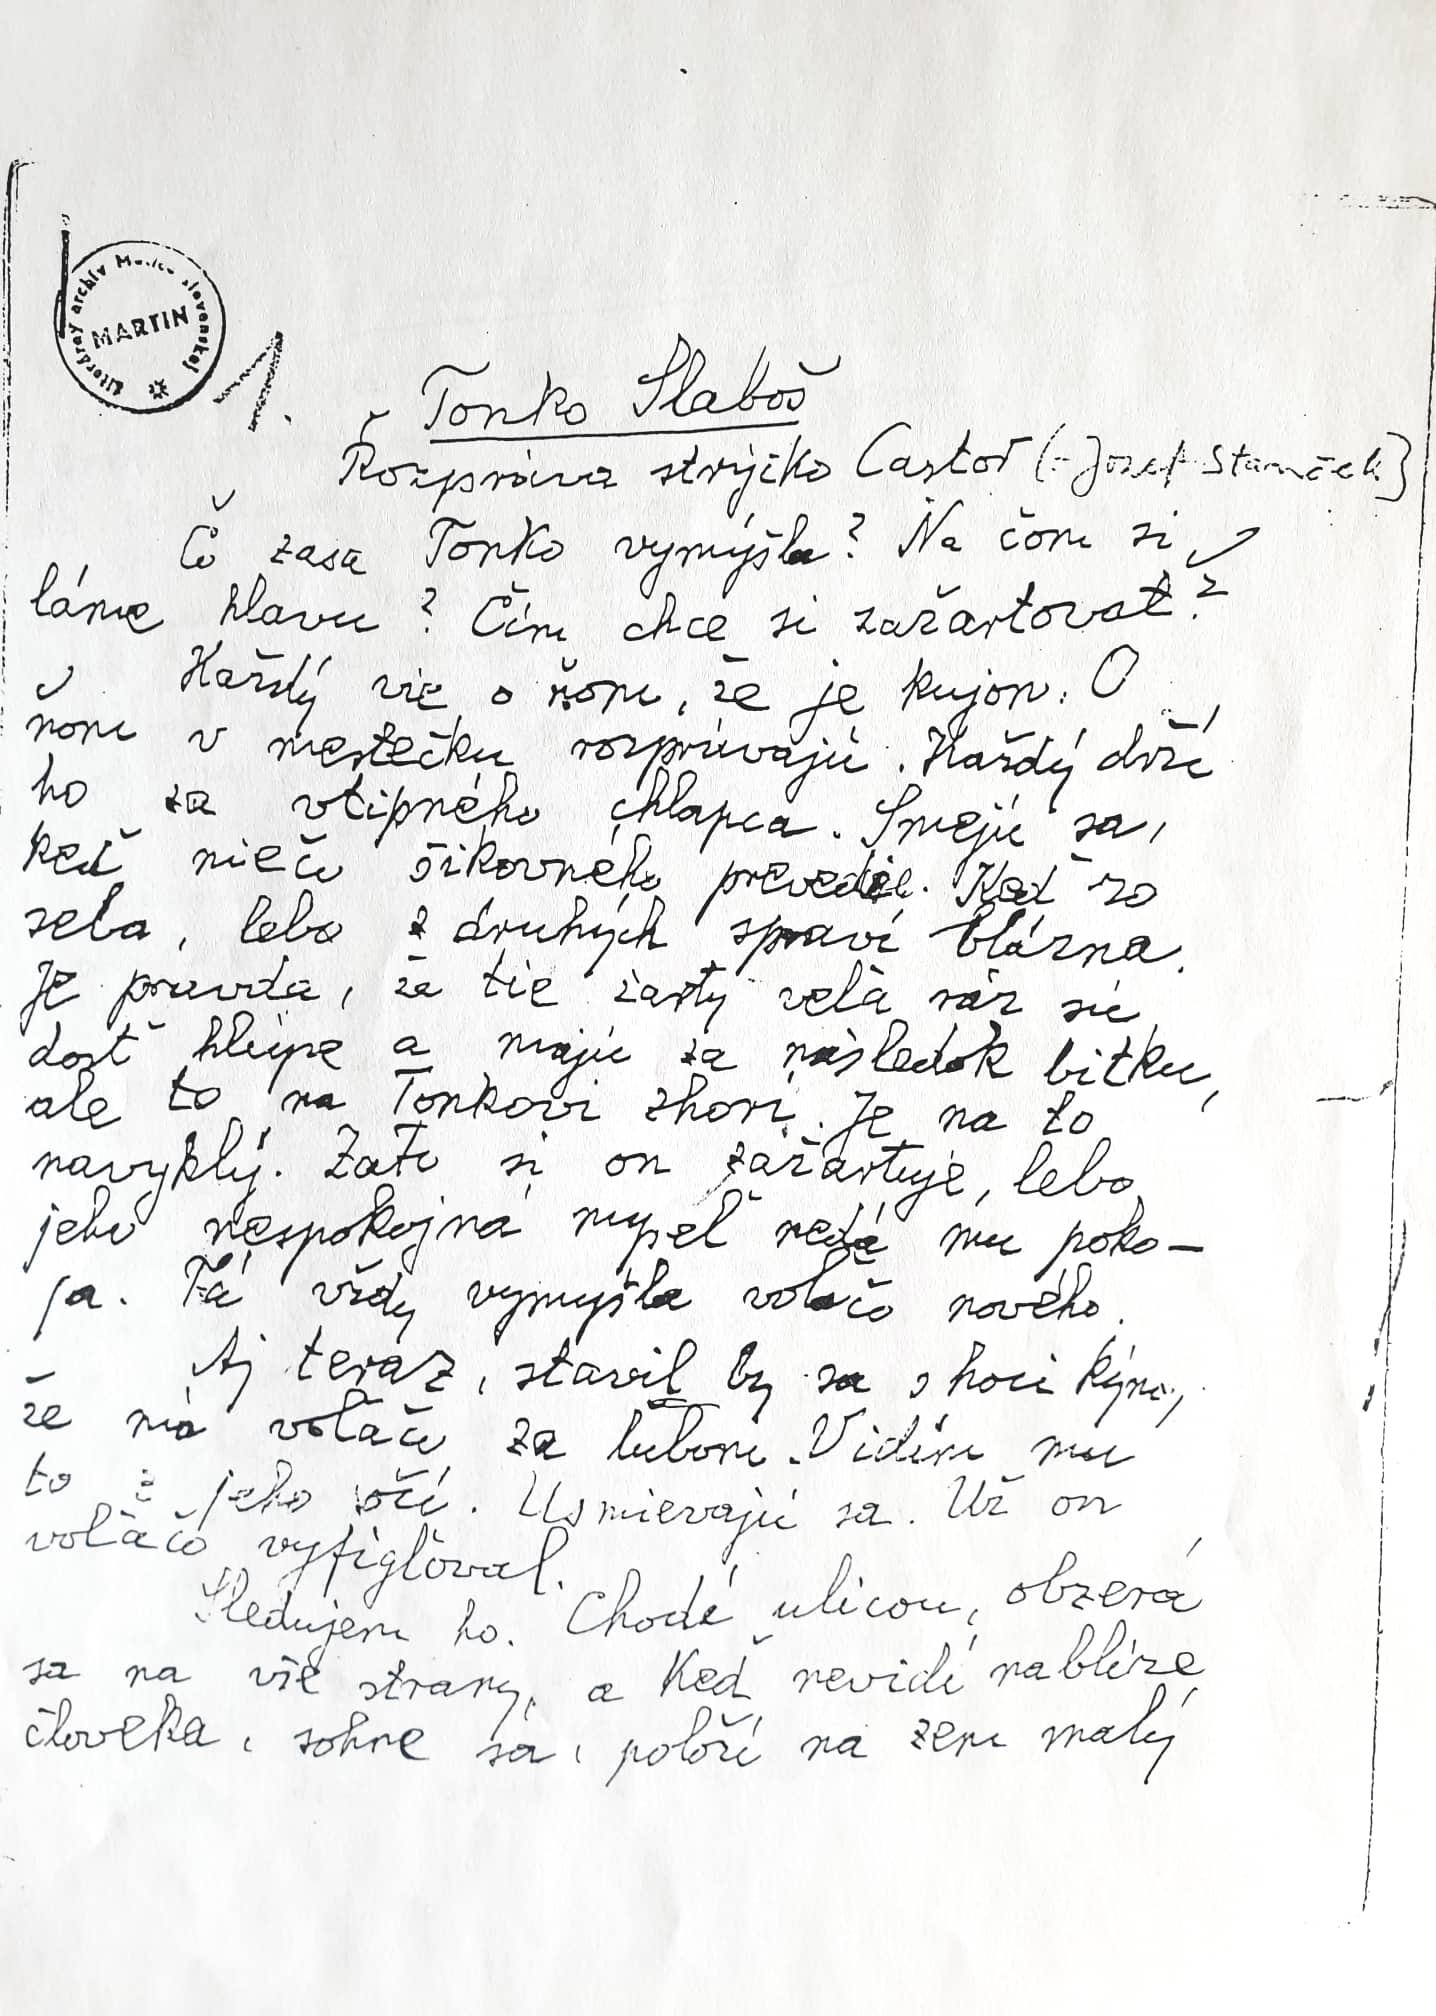 Literárny archív Matice slovenskej
MARTIN
1.
Tonko Slaboš
Rozpráva strýčko Castor (- Jozef Stanček)
Čo zasa Tonko vymýšla? Na čom si
láme hlavu? Čím chce si zažartovať?
Každý vie o ňom, že je kujon. O
ňom v mestečku rozprávajú. Každý drží
ho za vtipného chlapca. Smejú sa,
keď niečo šikovného prevedie. Keď zo
seba, lebo z druhých spraví blázna.
Je pravda, že tie žarty veľa ráz sú
dosť hlúpe a majú za následok bitku,
ale to na Tonkovi zhorí. Je na to
navyklý. Zato si on zažartuje, lebo
jeho nespokojná myseľ nedá mu poko-
ja. Tá vždy vymyšla voľačo nového.
Aj teraz, stavil by sa s hoci kým,
že má voľačo za lubom. Vidím mu
to z jeho očí. Usmievajú sa. Už on
voľačo vyfigľoval.
Sledujem ho. Chodí ulicou, obzerá
sa na vše strany, a keď nevidí nablíze
človeka, sohne sa, položí na zem malý